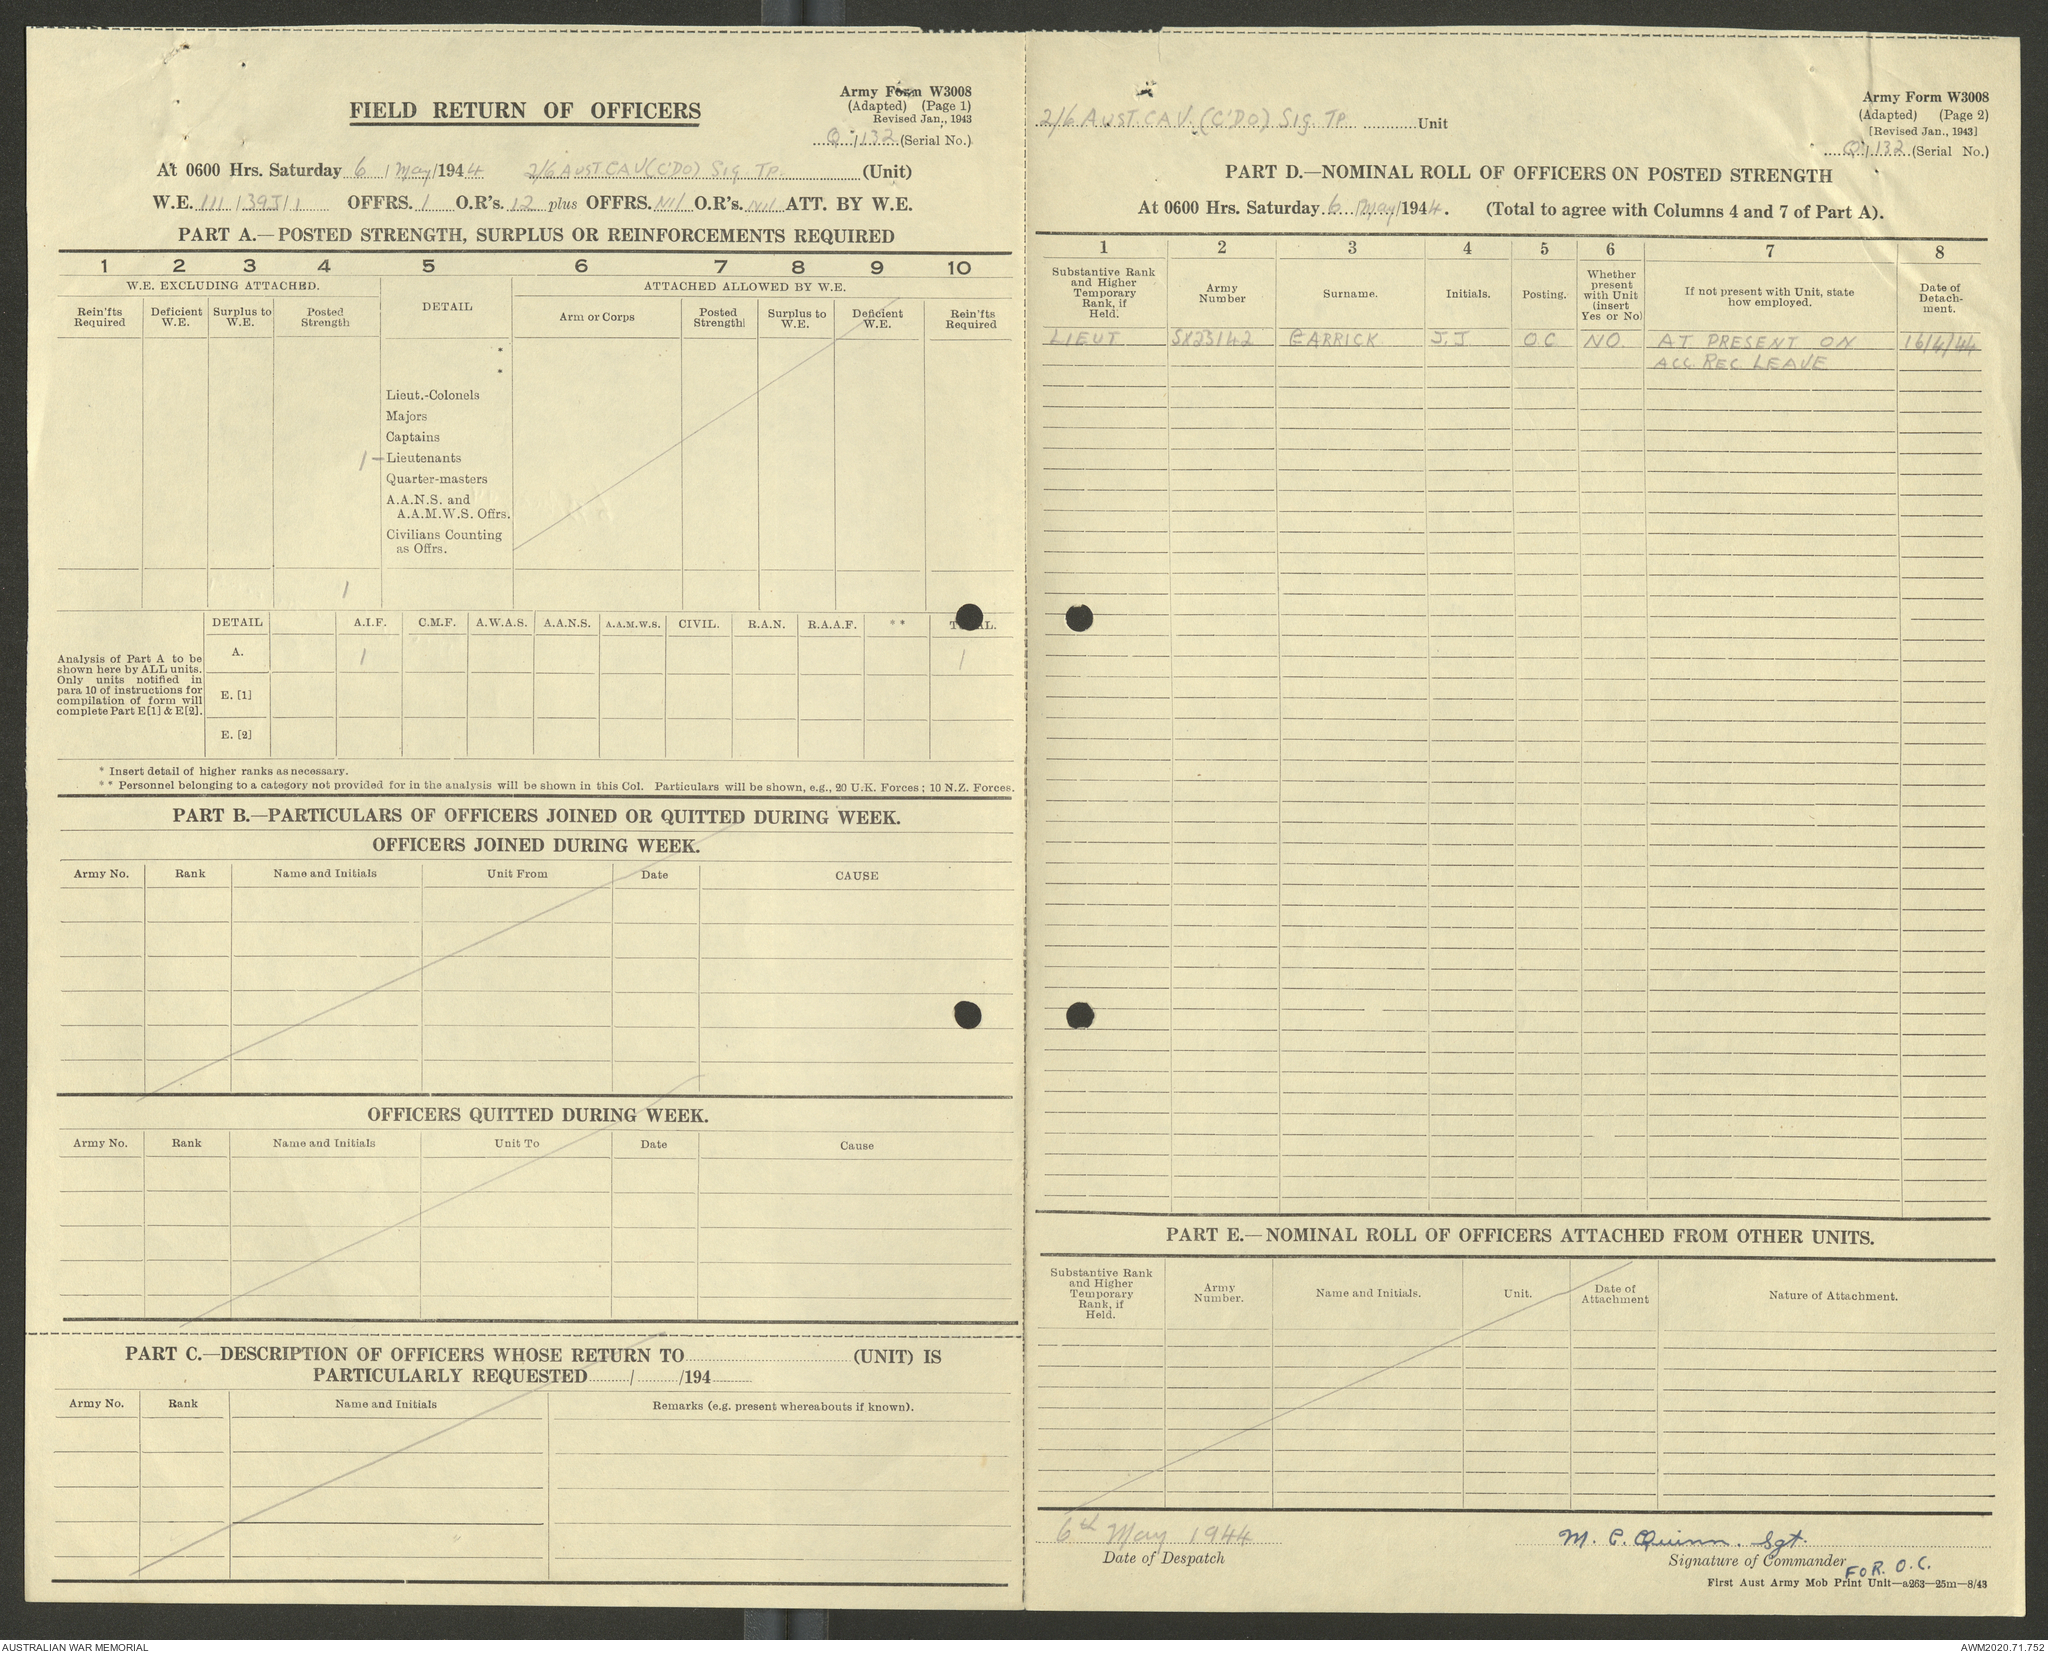 FIELD RETURN OF OFFICERS
Army Form W3008
(Adapted) (Page 1)
Revised Jan., 1943
Q / 132 (Serial No.)
At 0600 Hrs. Saturday 6 / May / 1944 2/6 AUST CAV (C'DO) Sig. TP. (Unit)
W.E. III / 39J / 1 OFFRS. 1 O.R's. 12 plus OFFRS. Nil O.R's. Nil ATT. BY W.E.
PART A.—POSTED STRENGTH, SURPLUS OR REINFORCEMENTS REQUIRED
1 2 3 4 5 6 7 8 9 10
W.E. EXCLUDING ATTACHED. DETAIL ATTACHED ALLOWED BY W.E.
Rein'fts Required Deficient W.E. Surplus to W.E. Posted Strength Arm or Corps Posted Strength Surplus to W.E. Deficient W.E. Rein'fts Required
*
*
Lieut.-Colonels
Majors
Captains
1 — Lieutenants
Quarter-masters
A.A.N.S. and
A.A.M.W.S. Offrs.
Civilians Counting
as Offrs.
1
DETAIL A.I.F. C.M.F. A.W.A.S. A.A.N.S. A.A.M.W.S. CIVIL. R.A.N. R.A.A.F. ** TOTAL.
A. 1 1
Analysis of Part A to be
shown here by ALL units.
Only units notified in
para 10 of instructions for
compilation of form will
complete Part E[1] & E[2].
E. [1]
E. [2]
* Insert detail of higher ranks as necessary.
** Personnel belonging to a category not provided for in the analysis will be shown in this Col. Particulars will be shown, e.g., 20 U.K. Forces; 10 N.Z. Forces.
PART B.—PARTICULARS OF OFFICERS JOINED OR QUITTED DURING WEEK.
OFFICERS JOINED DURING WEEK.
Army No. Rank Name and Initials Unit From Date CAUSE
OFFICERS QUITTED DURING WEEK.
Army No. Rank Name and Initials Unit To Date Cause
PART C.—DESCRIPTION OF OFFICERS WHOSE RETURN TO (UNIT) IS
PARTICULARLY REQUESTED / /194
Army No. Rank Name and Initials Remarks (e.g. present whereabouts if known).
2/6 AUST. CAV. (C'DO) Sig. TP Unit
Army Form W3008
(Adapted) (Page 2)
[Revised Jan., 1943]
Q / 132 (Serial No.)
PART D.—NOMINAL ROLL OF OFFICERS ON POSTED STRENGTH
At 0600 Hrs. Saturday 6 / May / 1944. (Total to agree with Columns 4 and 7 of Part A).
1 2 3 4 5 6 7 8
Substantive Rank and Higher Temporary Rank, if Held. Army Number Surname. Initials. Posting. Whether present with Unit (insert Yes or No) If not present with Unit, state how employed. Date of Detach-ment.
LIEUT SX23142 CARRICK J.J. OC NO. AT PRESENT ON 16/4/44
ACC. REC. LEAVE
PART E.—NOMINAL ROLL OF OFFICERS ATTACHED FROM OTHER UNITS.
Substantive Rank and Higher Temporary Rank, if Held. Army Number. Name and Initials. Unit. Date of Attachment Nature of Attachment.
6th May 1944
Date of Despatch
M. C. Quinn. Sgt.
Signature of Commander
FOR. O.C.
First Aust Army Mob Print Unit—a263—25m—8/43
AUSTRALIAN WAR MEMORIAL
AWM2020.71.752